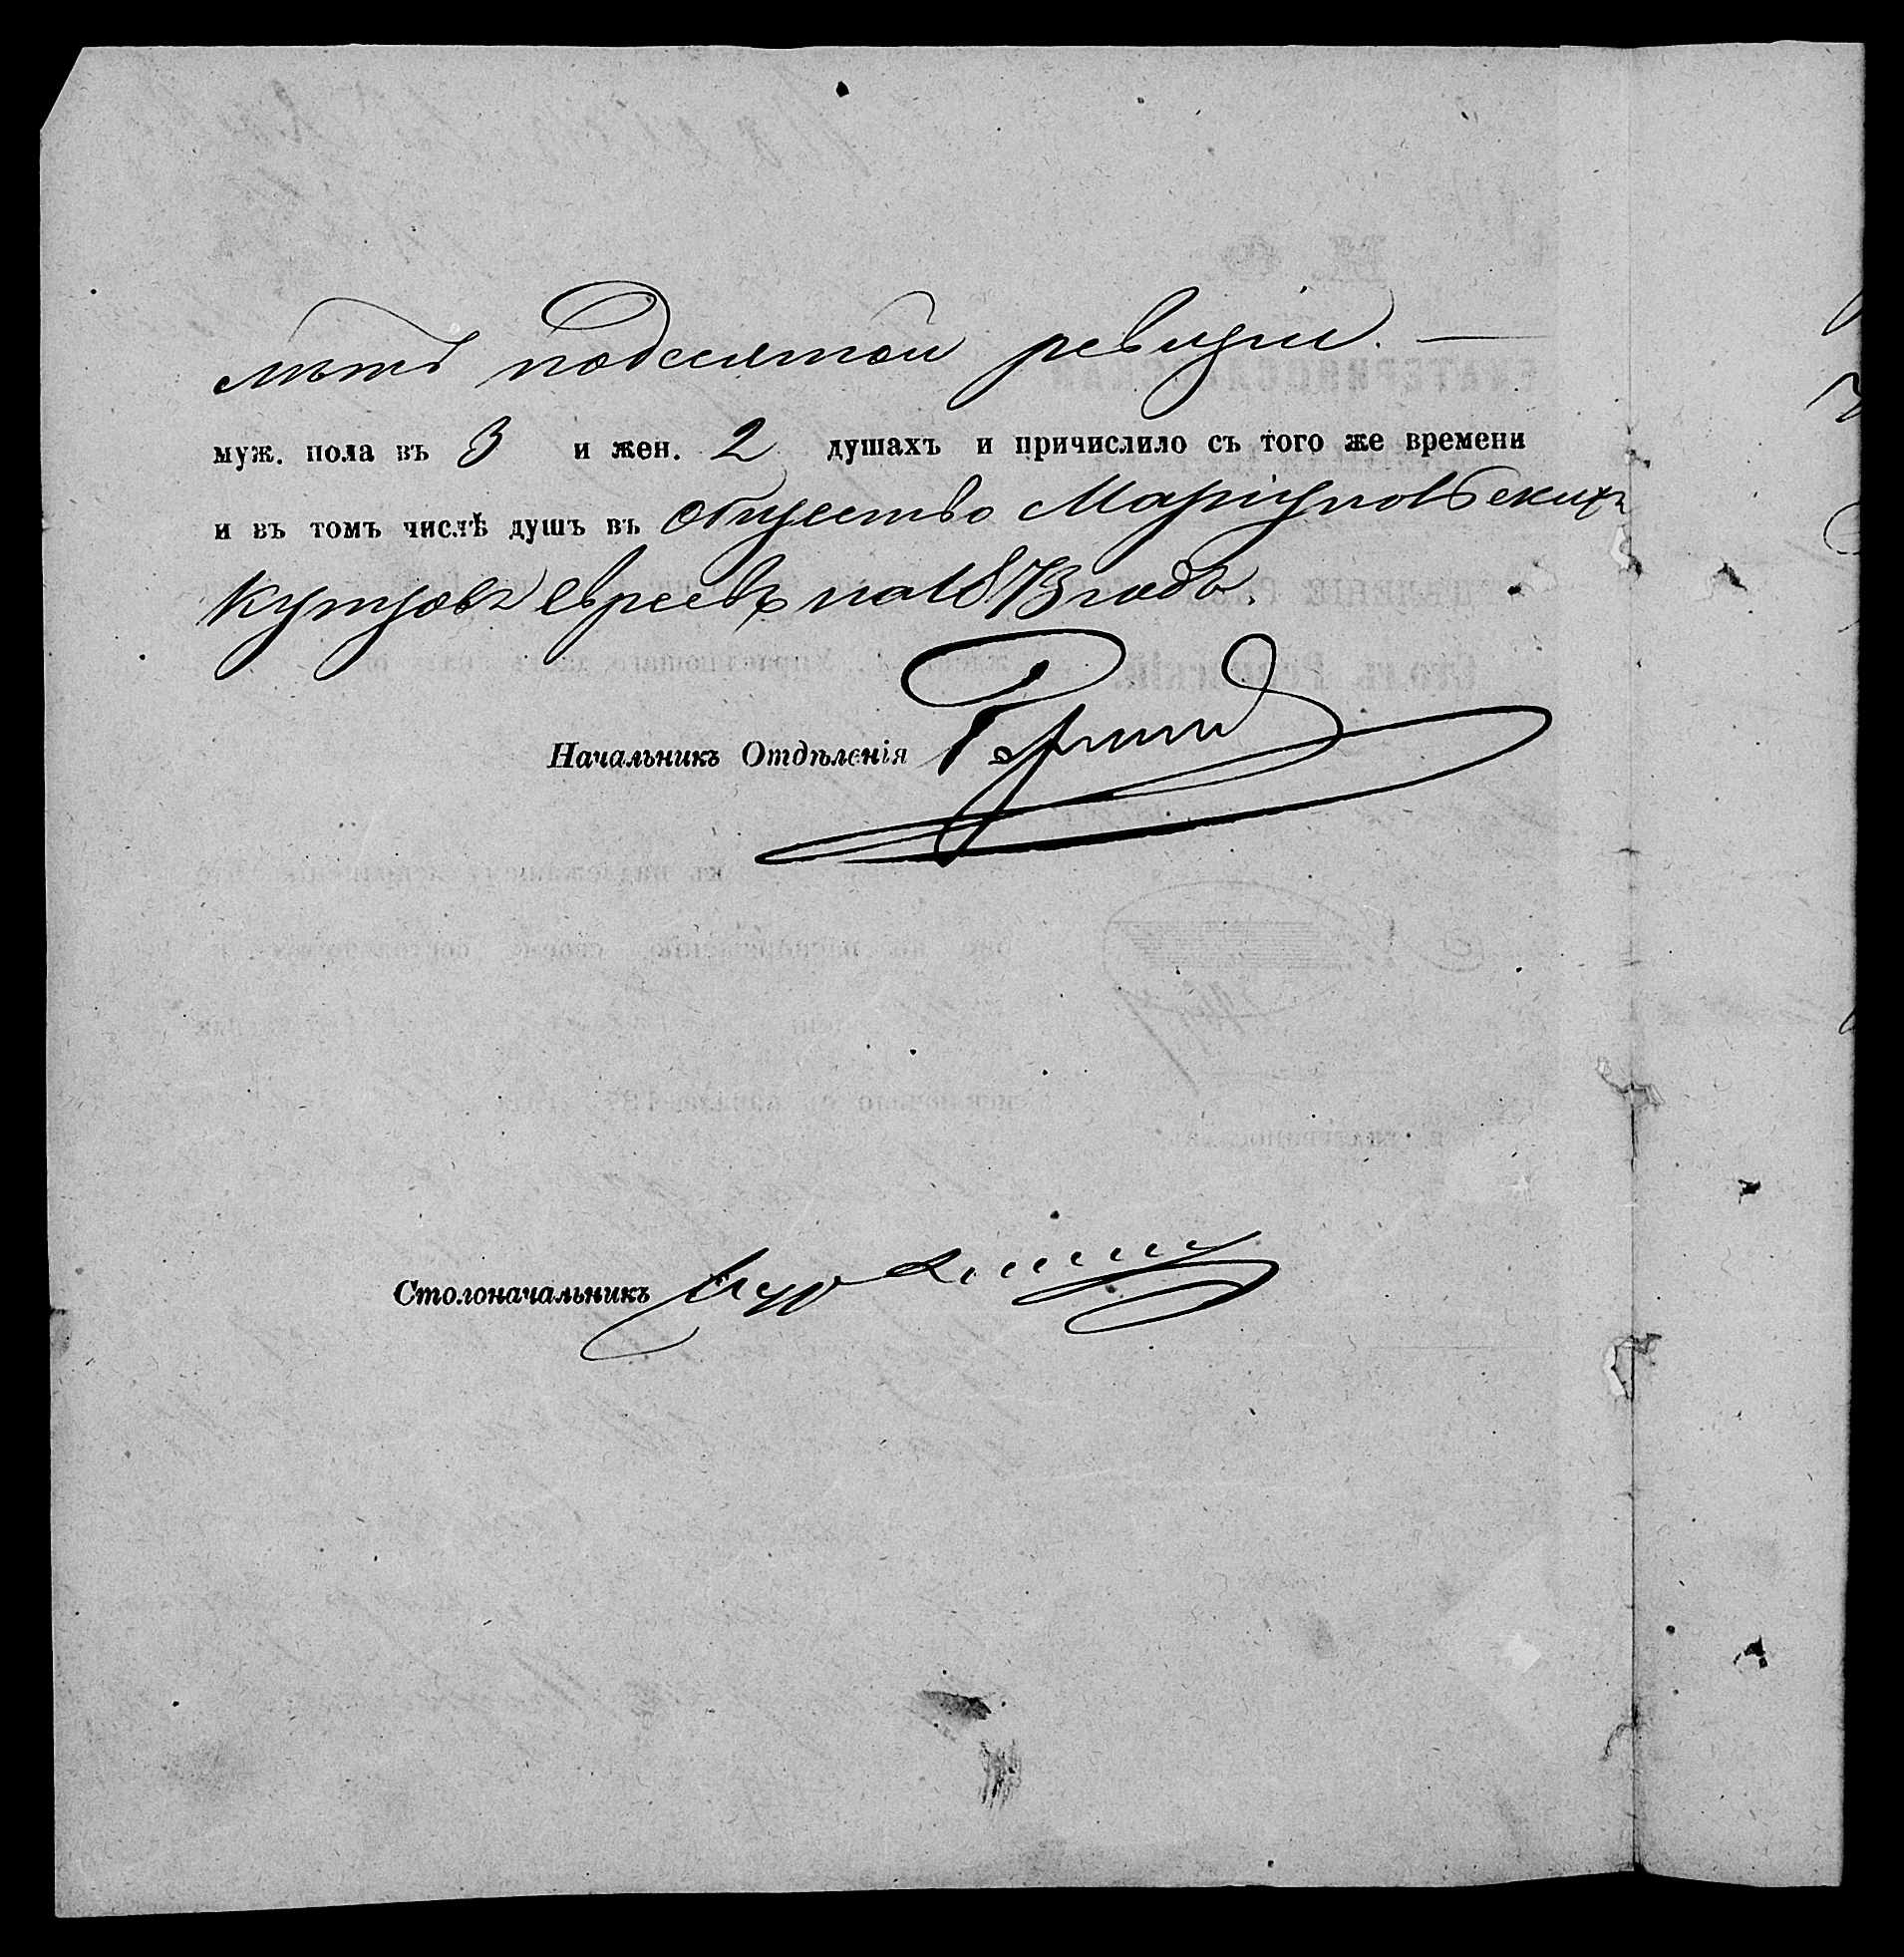 лѣтъ подесятой ревизіи. —
муж. пола въ 3 и жен. 2 душахъ и причислило съ того же времени
и въ томъ числѣ душъ въ общество Маріупольскихъ
купцовъ евреевъ на 1873 годъ.
Начальникъ Отдѣленія
Столоначальникъ